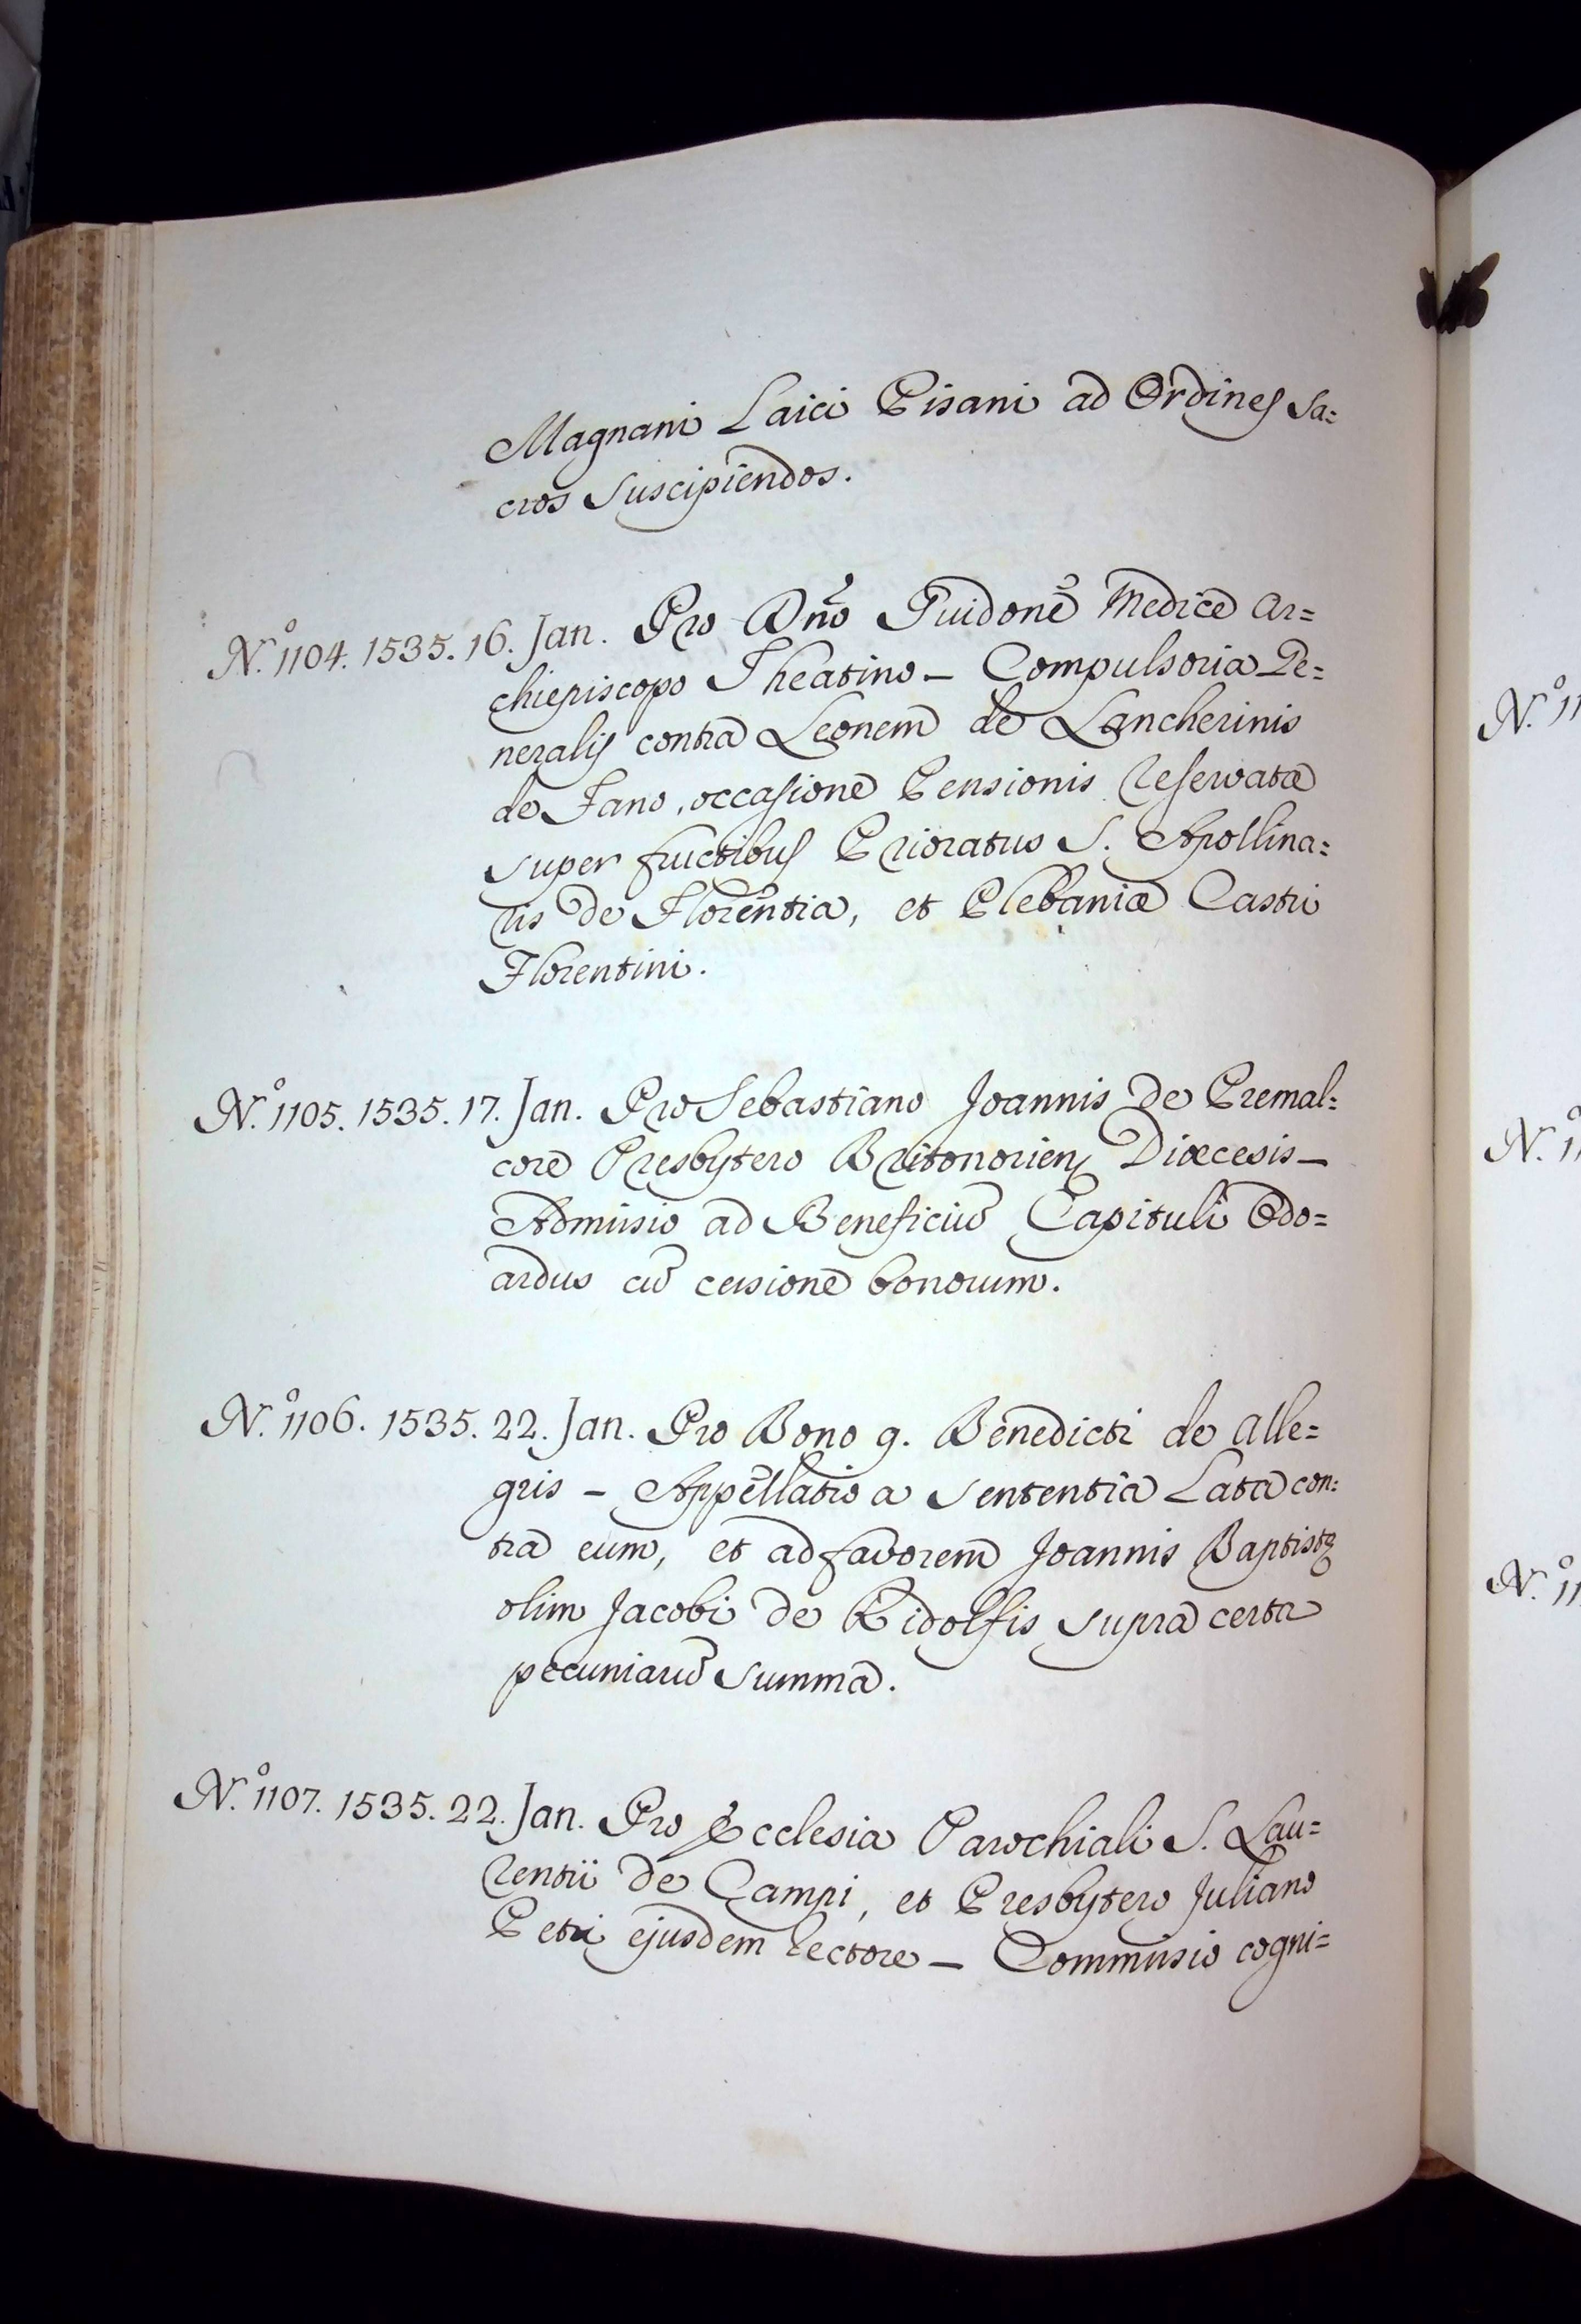 Magnani Laici Pisani ad Ordines Sa=
cros Suscipiendos.
N.º 1104. 1535. 16. Jan. Pro Dño Guidone Medice Ar=
chiepiscopo Theatino – Compulsoria Ge=
neralis contra Leonem de Lancherinis
de Fano, occasione Pensionis Reservatæ
super fructibus Prioratus S. Apollina=
ris de Florentia, et Plebaniæ Castri
Florentini.
N.º 1105. 1535. 17. Jan. Pro Sebastiano Joannis de Premal=
core Presbytero Britonorien Diœcesis –
Admissio ad Beneficiū Capituli Odo=
ardus cū cessione bonorum.
N.º 1106. 1535. 22. Jan. Pro Bono q. Benedicti de Alle=
gris – Appellatio a Sententia Lata con=
tra eum, et ad favorem Joannis Baptistę
olim Jacobi de Ridolfis supra certa
pecuniarū Summa.
N.º 1107. 1535. 22. Jan. Pro Ecclesia Parochiali S. Lau=
rentii de Campi, et Presbytero Juliano
Petri ejusdem Rectore – Commissio cogni=
N.º 11
N.º 11
N.º 11